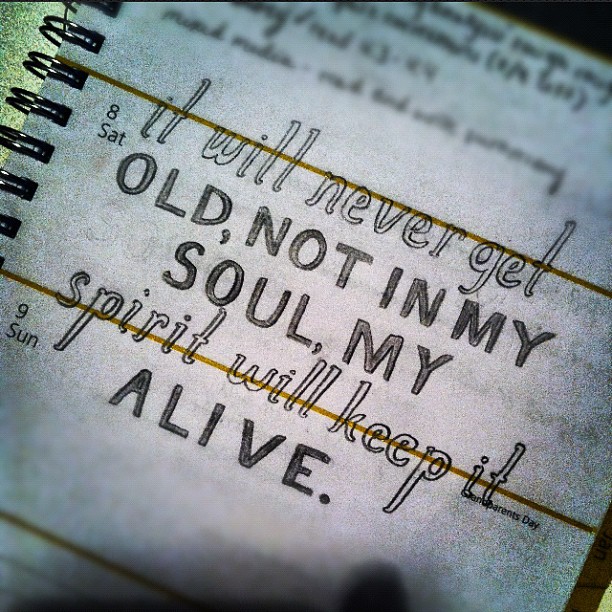 8
Sat
it will never get
OLD, NOT IN MY
SOUL, MY
9
Sun
spirit will keep it
ALIVE.
Grandparents Day